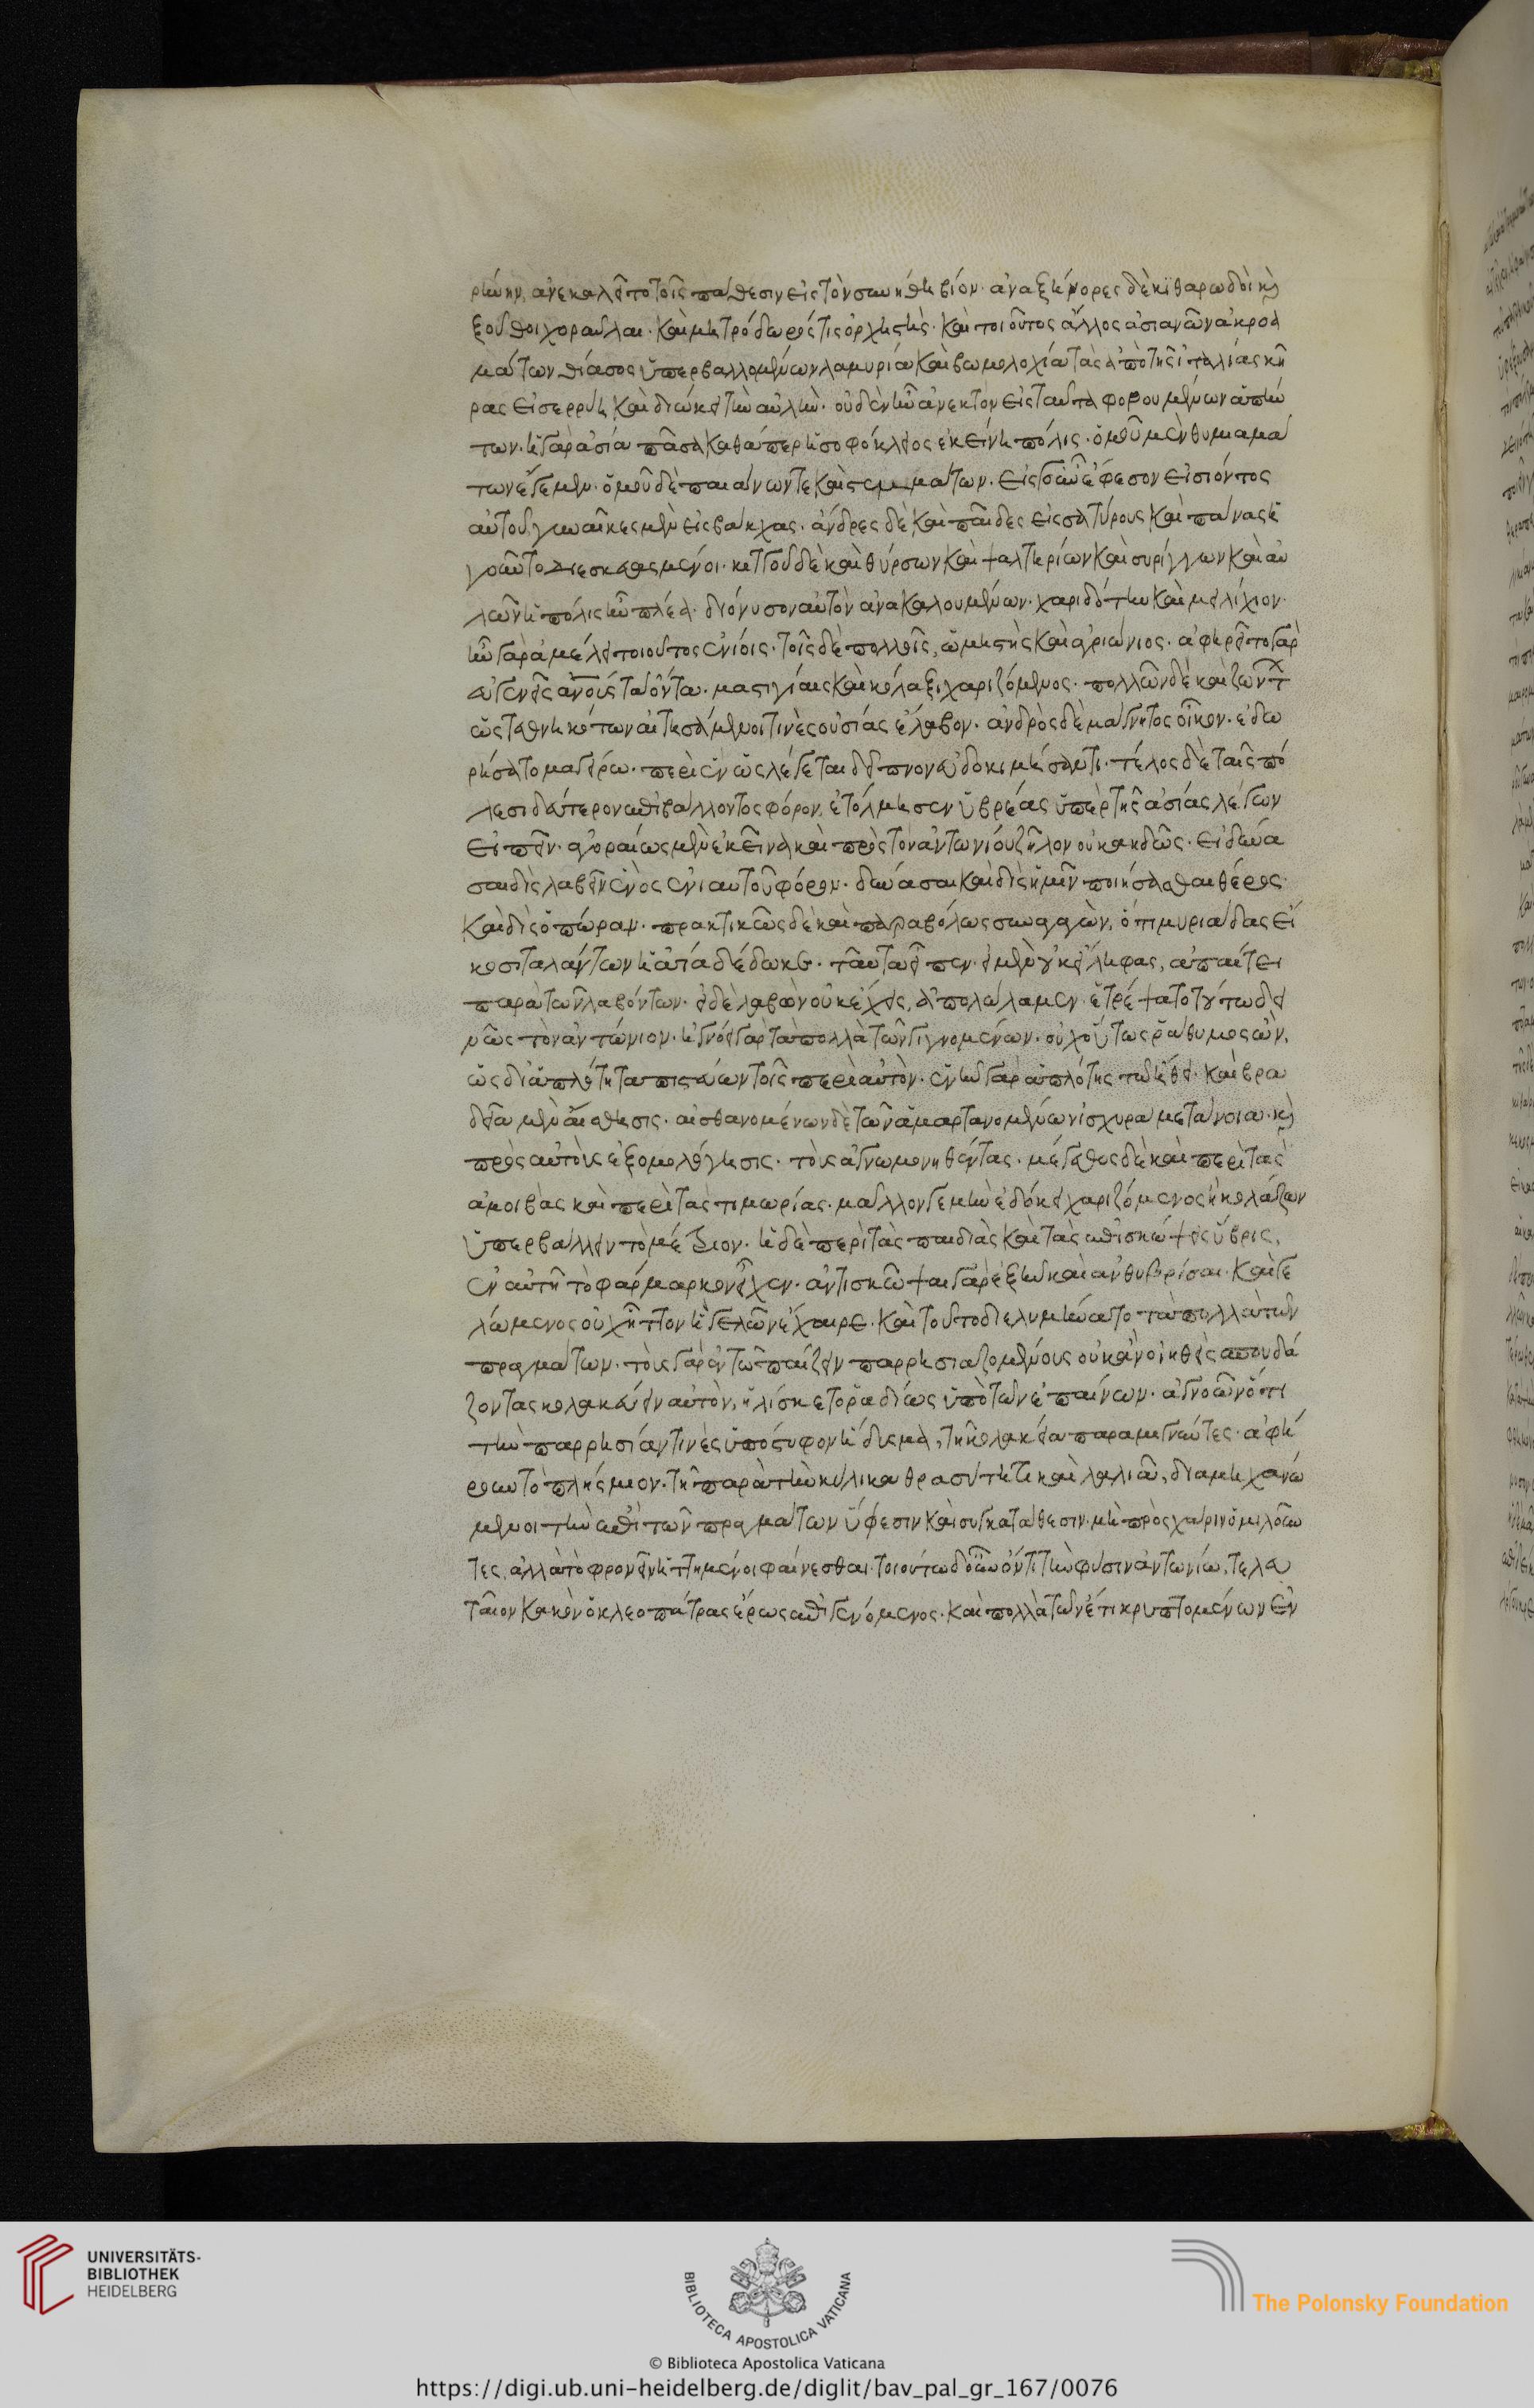 ρήνην ἀνεκαλεῖτο τοῖς πάθεσιν εἰς τὸν συνήθη βίον. ἀναξήνορες δὲ κιθαρωδοὶ καὶ
ξοῦθοι χοραῦλαι. καὶ μητρόδωρός τις ὀρχηστὴς. καὶ τοιοῦτος ἄλλος ἀσιανῶν ἀκροα
μάτων θίασος ὑπερβαλλομένων λαμυρία καὶ βωμολοχία τὰς ἀπὸ τῆς ἰταλίας κῆ
ρας εἰσερρύη καὶ διώκει τὴν αὐλὴν. οὐδὲν ἦν ἀνεκτὸν εἰς ταῦτα φορουμένων ἁπάν
των. ἡ γὰρ ἀσία πᾶσα καθάπερ ἡ σοφόκλειος ἐκείνη πόλις. ὁμοῦ μὲν θυμιαμά
των ἔγεμεν. ὁμοῦ δὲ παιάνων τε καὶ στεμμάτων. εἰς γοῦν ἔφεσον εἰσιόντος
αὐτοῦ, γυναῖκες μὲν εἰς βάκχας. ἄνδρες δὲ καὶ παῖδες εἰς σατύρους καὶ πάνας ἡ
γοῦντο διεσκευασμένοι. κιττοῦ δὲ καὶ θύρσων καὶ ψαλτηρίων καὶ συρίγγων καὶ αὐ
λῶν ἡ πόλις ἦν πλέα. διόνυσον αὐτὸν ἀνακαλουμένων. χαριδότην καὶ μειλίχιον.
ἦν γὰρ ἀμέλει τοιοῦτος ἐνίοις. τοῖς δὲ πολλοῖς, ὠμηστὴς καὶ ἀγριώνιος. ἀφῃρεῖτο γὰρ
εὐγενεῖς ἀνους τὰ ὄντα. μαστιγίαις καὶ κόλαξι χαριζόμενος. πολλῶν δὲ καὶ ζώντ
ὡς τεθνηκότων αἰτησάμενοί τινες οὐσίας ἔλαβον. ἀνδρὸς δὲ μάγνητος οἶκον. ἐδω
ρήσατο μαγείρω. περὶ ἓν ὡς λέγεται δεῖπνον εὐδοκιμήσαντι. τέλος δὲ ταῖς πό
λεσι δεύτερον ἐπιβάλλοντος φόρον, ἐτόλμησεν ὑβρέας ὑπὲρ τῆς ἀσίας λέγων
εἰπεῖν. ἀγοραίως μὲν ἐκεῖνα καὶ πρὸς τὸν ἀντωνίου ζῆλον οὐκ ἀηδῶς. εἰ δύνα
σαι δὶς λαβεῖν ἑνὸς ἐνιαυτοῦ φόρον. δύνασαι καὶ δὶς ἡμῖν ποιήσασθαι θέρος.
καὶ δὶς ὀπώραν. πρακτικῶς δὲ καὶ παραβόλως συναγαγὼν, ὅτι μυριάδας εἴ
κοσι ταλάντων ἡ ἀσία δέδωκε. ταῦτα εἶπεν. εἰ μὲν οὐκ εἴληφας, ἀπαίτει
παρὰ τῶν λαβόντων. εἰ δὲ λαβὼν οὐκ ἔχεις, ἀπολώλαμεν. ἔτρεψα τοτούτω δει
νῶς τὸν ἀντώνιον. ἠγνόει γὰρ τὰ πολλὰ τῶν γιγνομένων. οὐχ οὕτως ῥάθυμος ὢν,
ὡς δι' ἁπλότητα πιστεύων τοῖς περὶ αὐτὸν. ἐνῆν γὰρ ἁπλότης τῶ ἤθει. καὶ βρα
δεῖα μὲν αἴσθησις. αἰσθανομένων δὲ τῶν ἁμαρτανομένων ἰσχυρὰ μετάνοια. καὶ
πρὸς αὐτοὺς ἐξομολόγησις. τοὺς ἀγνωμονηθέντας. μέγεθος δὲ καὶ περὶ τὰς
ἀμοιβὰς καὶ περὶ τὰς τιμωρίας. μᾶλλόν γε μὴν ἐδόκει χαριζόμενος ἢ κολάζων
ὑπερβάλλειν τὸ μέτριον. ἡ δὲ περὶ τὰς παιδιὰς καὶ τὰς ἐπισκώψεις ὕβρις,
ἐν αὐτῆ τὸ φάρμακον εἶχεν. ἀντισκῶψαι γὰρ ἐξῆν καὶ ἀνθυβρίσαι. καὶ γε
λώμενος οὐχ ἧττον ἢ γελῶν ἔχαιρε. καὶ τοῦτο διελυμήνατο τὰ πολλὰ τῶν
πραγμάτων. τοὺς γὰρ ἐν τῶ παίζειν παρρησιαζομένους οὐκ ἂν οἰηθεὶς σπουδά
ζοντας κολακεύειν αὐτὸν, ἡλίσκετο ῥαδίως ὑπὸ τῶν ἐπαίνων. ἀγνοῶν ὅτι
τὴν παρρησίαν τινὲς ὑπόστυφον ἥδυσμα, τῆ κολακεία παραμιγνύντες. ἀφή
ρουν τὸ πλήσμιον. τῆ παρὰ τὴν κύλικα θρασύτητι καὶ λαλιᾶ, διαμηχανώ
μενοι τὴν ἐπὶ τῶν πραγμάτων ὕφεσιν καὶ συγκατάθεσιν. μὴ πρὸς χάριν ὁμιλοῦν
τες, ἀλλὰ τὸ φρονεῖν ἡττημένοι φαίνεσθαι. τοιούτω δ' οὖν ὄντι τὴν φύσιν ἀντωνίω, τελευ
ταῖον κακὸν ὁ κλεοπάτρας ἔρως ἐπιγενόμενος. καὶ πολλὰ τῶν ἔτι κρυπτομένων ἐν
UNIVERSITÄTS-
BIBLIOTHEK
HEIDELBERG
BIBLIOTECA APOSTOLICA VATICANA
The Polonsky Foundation
© Biblioteca Apostolica Vaticana
https://digi.ub.uni-heidelberg.de/diglit/bav_pal_gr_167/0076